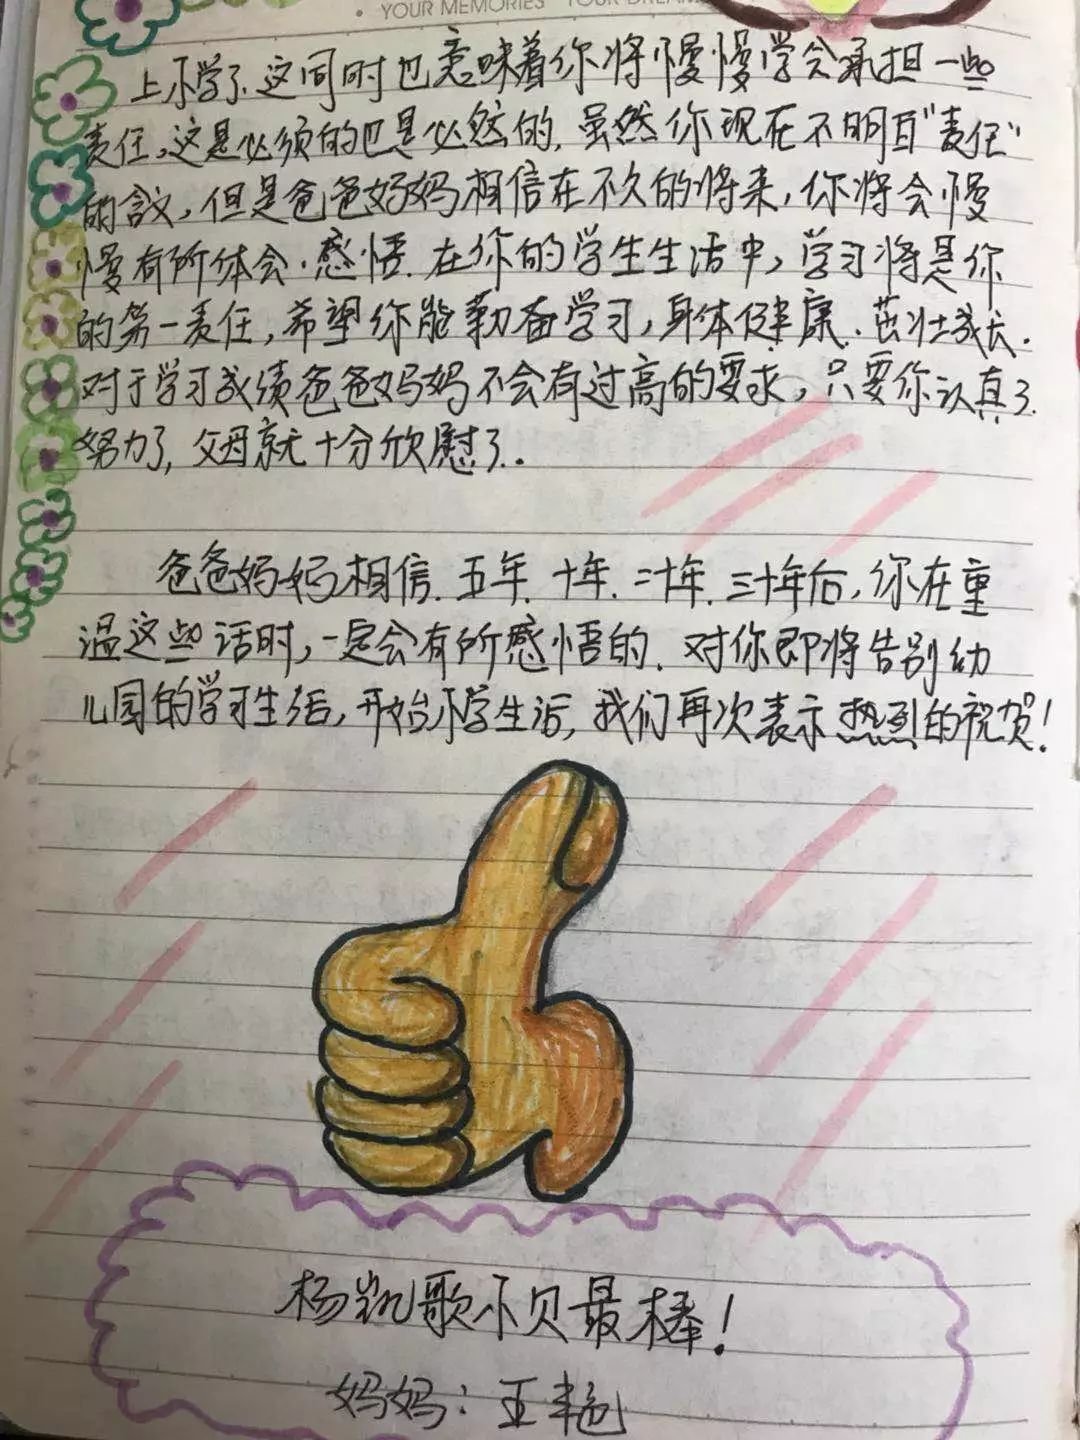 YOUR MEMORIES YOUR DREAM
上小学了、这同时也意味着你将慢慢学会承担一些
责任,这是必须的也是必然的.虽然你现在不明白"责任"
的含义,但是爸爸妈妈相信在不久的将来,你将会慢
慢有所体会.感悟.在你的学生生活中,学习将是你
的第一责任,希望你能勤奋学习,身体健康.茁壮成长.
对于学习成绩爸爸妈妈不会有过高的要求,只要你认真了.
努力了,父母就十分欣慰了.
爸爸妈妈相信.五年.十年.二十年.三十年后,你在重
温这些话时,一定会有所感悟的.对你即将告别幼
儿园的学习生活,开始小学生活,我们再次表示热烈的祝贺!
杨凯歌小贝最棒!
妈妈:王艳